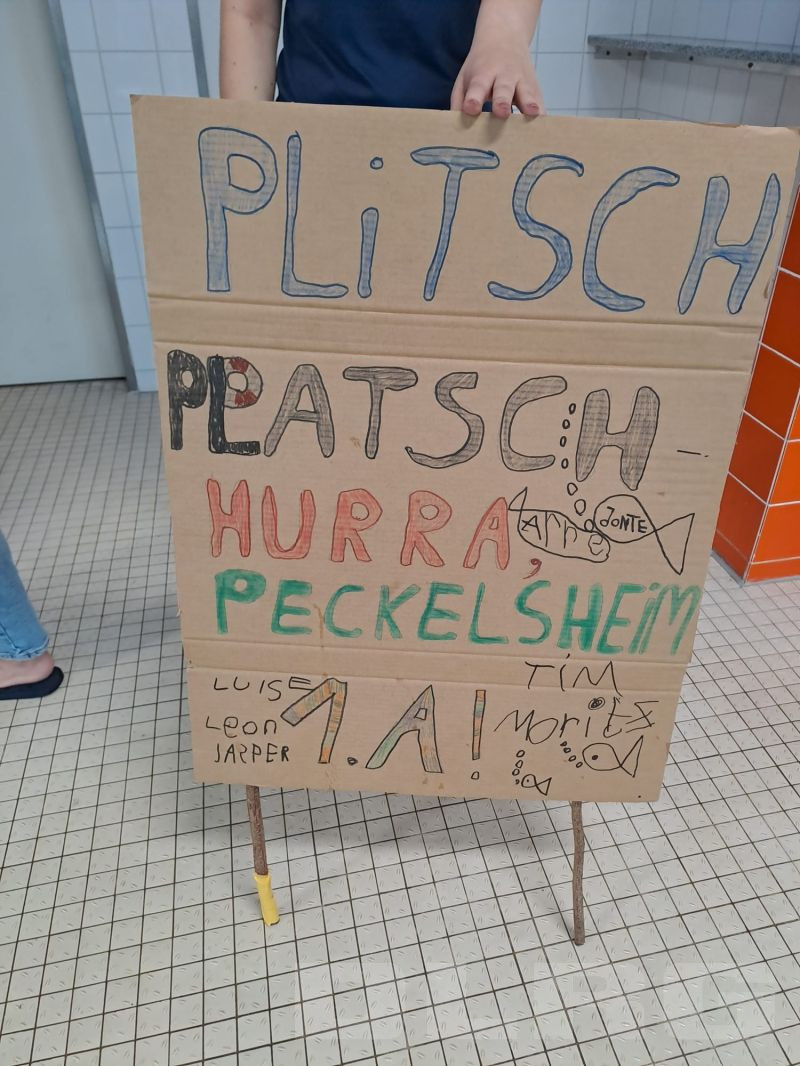 PLiTSCH
PLATSCH-
HURRA,
Arne
JONTE
PECKELSHEiM
LUISE
Leon
JASPER
1.A!
TiM
Moritz